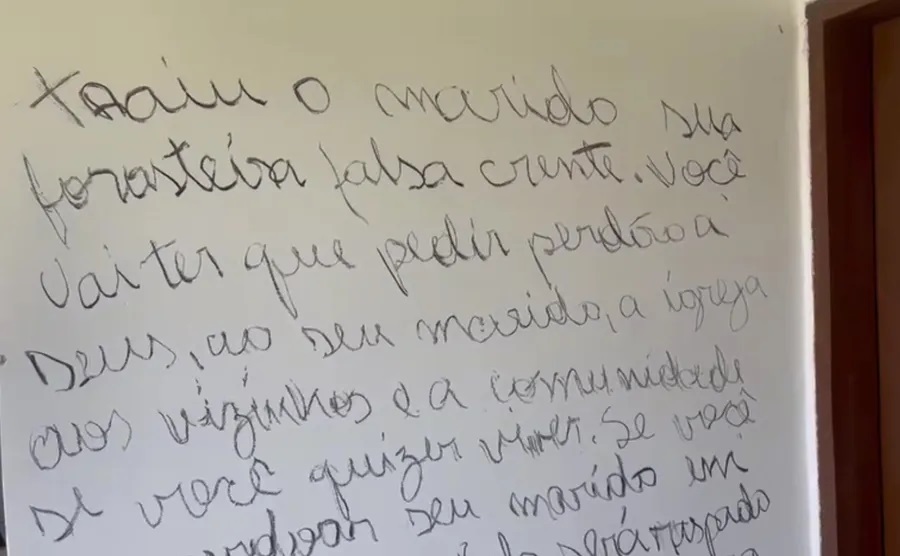 traiu o marido sua
forasteira falsa crente. Você
Vai ter que pedir perdão a
Deus, ao seu marido, a igreja
aos vizinhos e a comunidade
se você quizer viver. Se você
seu marido em
será raspado